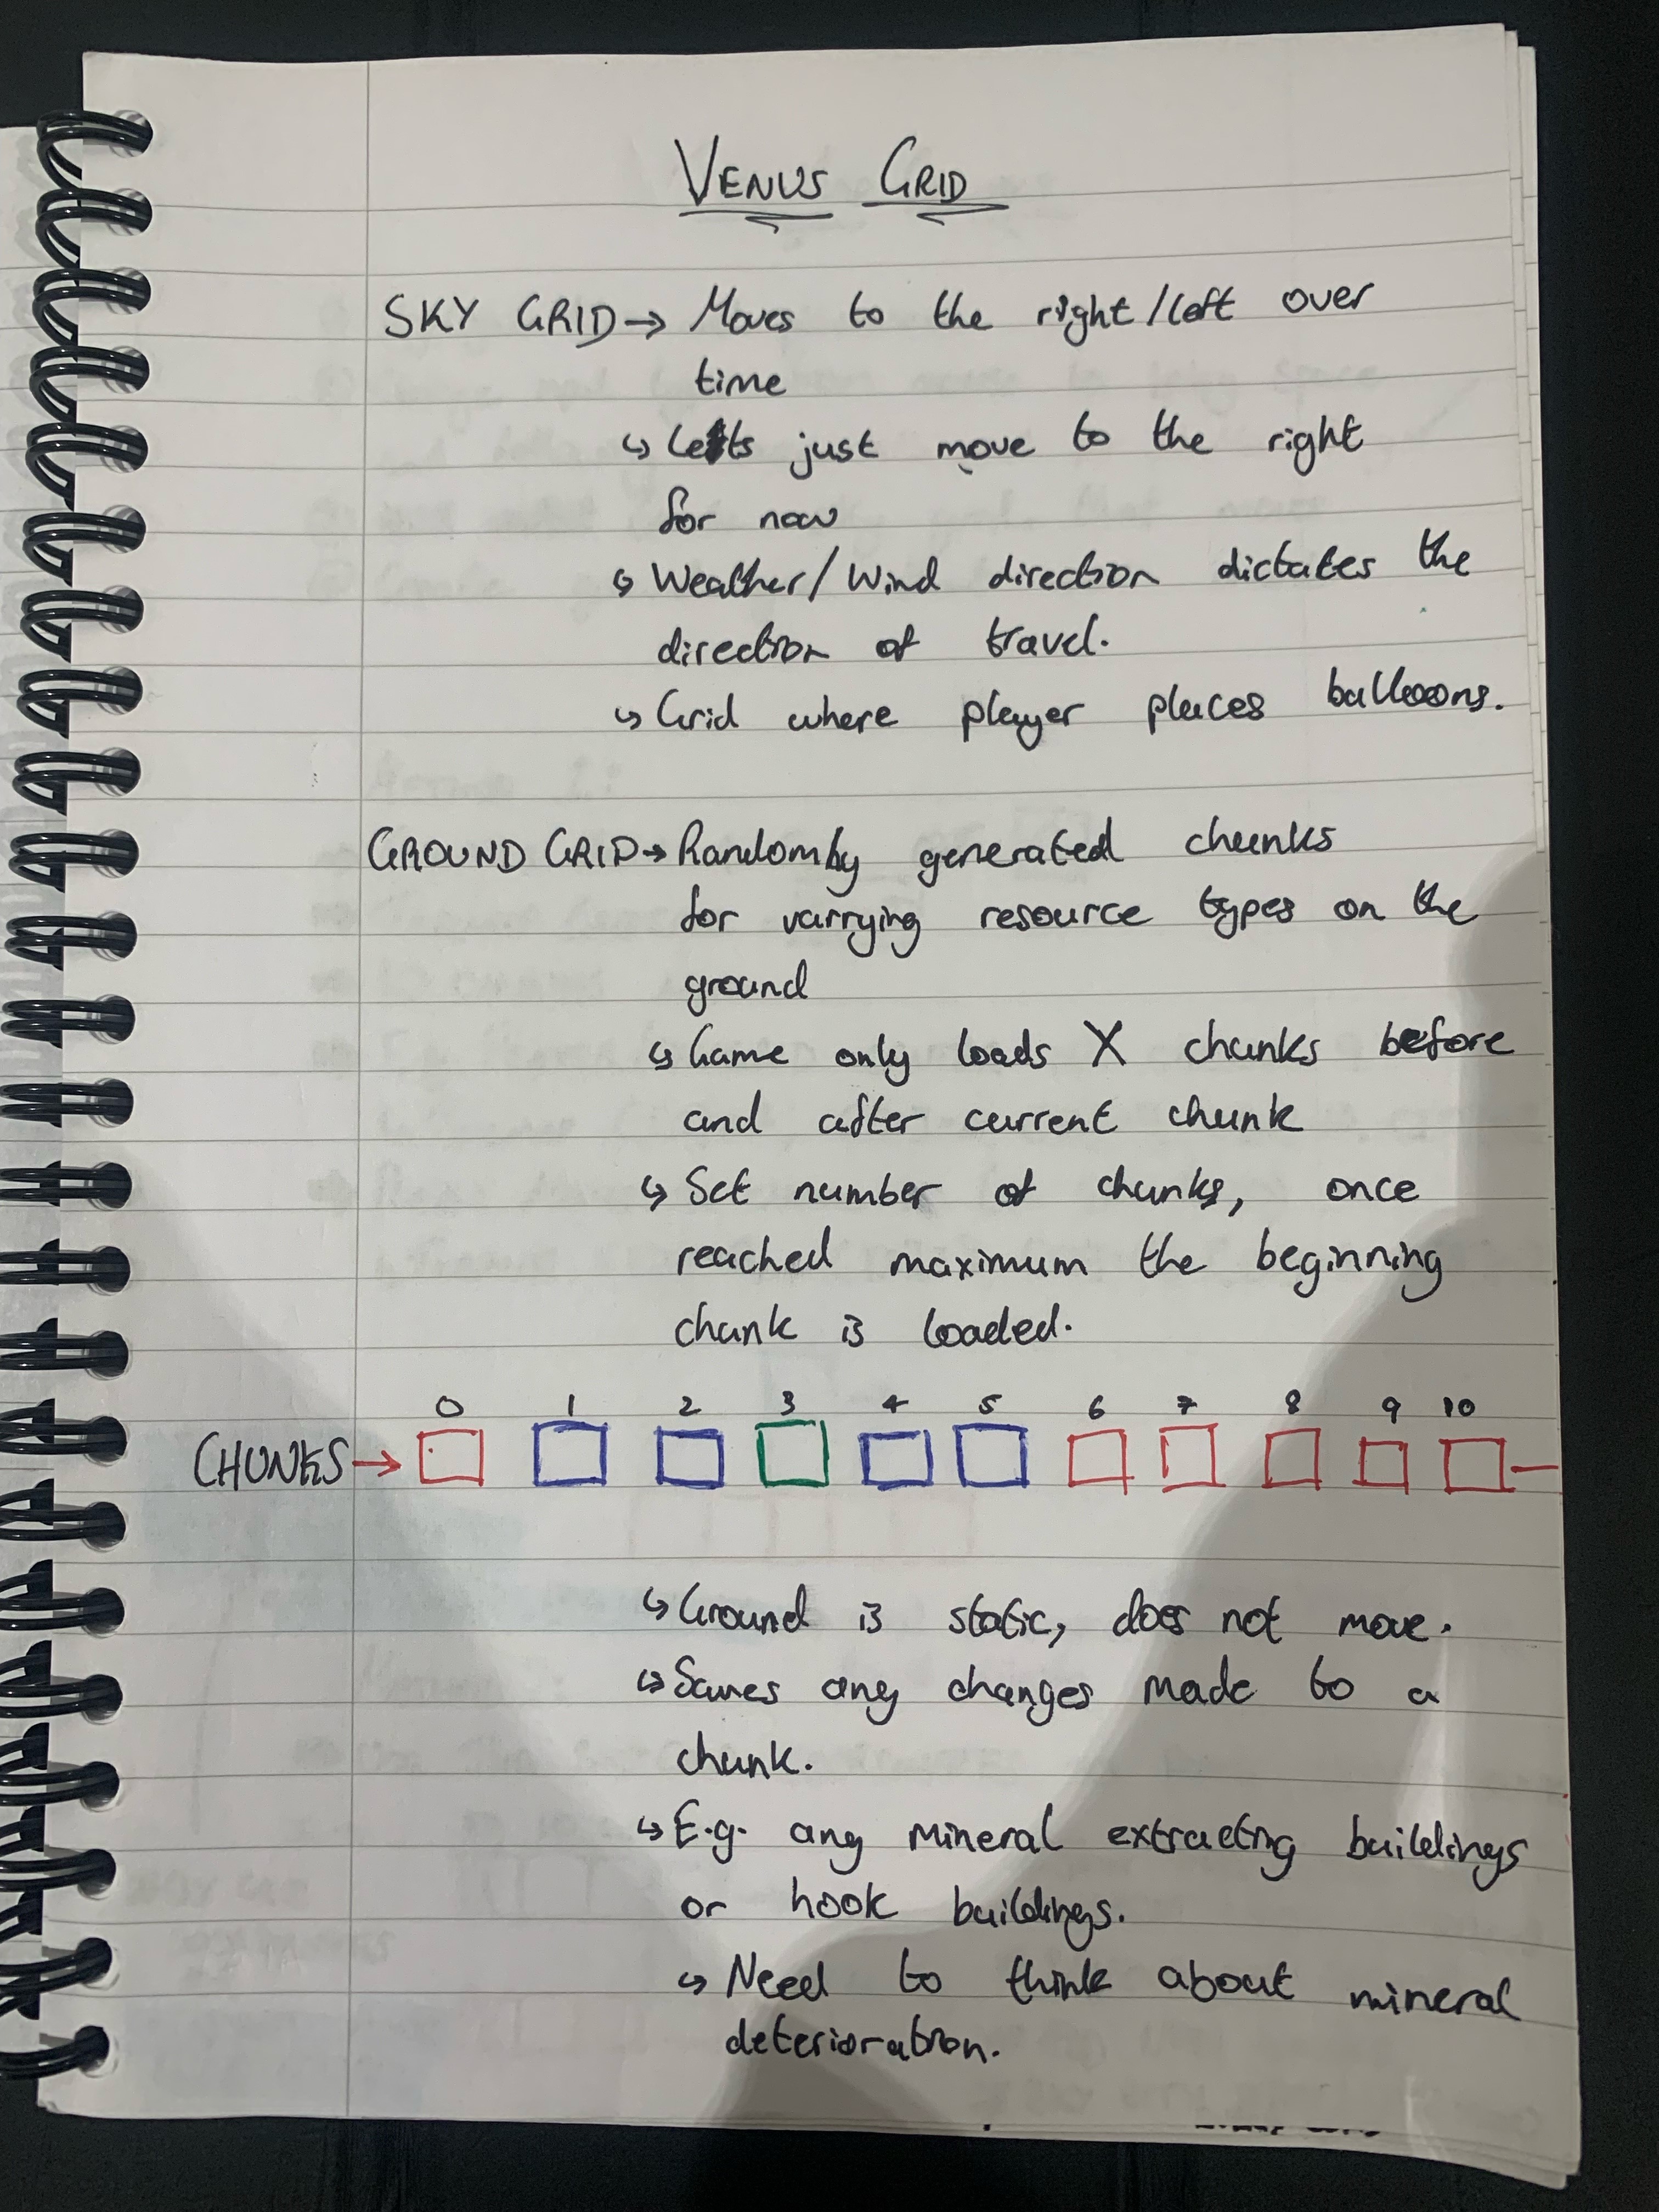 VENUS GRID
SKY GRID → Moves to the right/left over
time
↳ Lets just move to the right
for now
↳ Weather/Wind direction dictates the
direction of travel.
↳ Grid where player places balloons.
GROUND GRID → Randomly generated chunks
for varrying resource types on the
ground
↳ Game only loads X chunks before
and after current chunk
↳ Set number of chunks, once
reached maximum the beginning
chunk is loaded.
0 1 2 3 4 5 6 7 8 9 10
CHUNKS →
↳ Ground is static, does not move.
↳ Saves any changes made to a
chunk.
↳ E.g. any mineral extracting buildings
or hook buildings.
↳ Need to think about mineral
deterioration.